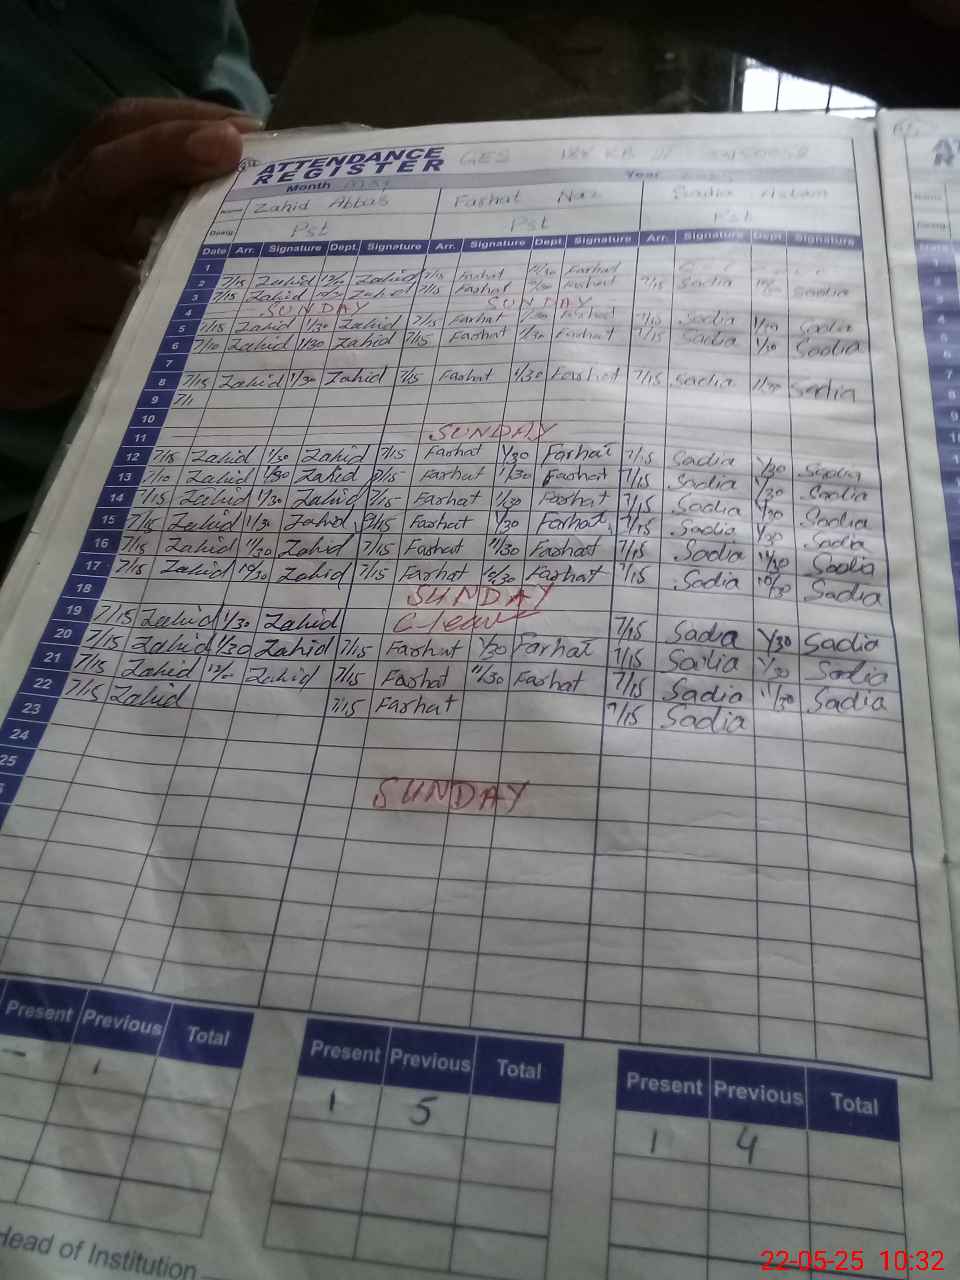 ATTENDANCE
REGISTER
GES 188 KB
Month May Year
Name Zahid Abbas Farhat Naz Sadia Aslam
Desig: Pst Pst Pst
Date Arr. Signature Dept. Signature Arr. Signature Dept. Signature Arr. Signature Dept. Signature
1
2 7/15 Zahid Zahid 7/15 Farhat Farhat
3 7/15 Zahid Zahid 7/15 Farhat Farhat 7/15 Sadia Sadia
4 SUNDAY SUNDAY
5 7/15 Zahid 1/30 Zahid 7/15 Farhat Farhat Sadia Sadia
6 7/10 Zahid 1/30 Zahid 7/15 Farhat 1/30 Farhat 7/15 Sadia 1/30 Sadia
7
8 7/15 Zahid 1/30 Zahid 7/15 Farhat 1/30 Farhat 7/15 Sadia 11/30 Sadia
9 7/1
10
11 SUNDAY
12 7/15 Zahid 1/30 Zahid 7/15 Farhat 1/30 Farhat 7/15 Sadia 1/30 Sadia
13 7/10 Zahid 1/30 Zahid 7/15 Farhat 1/30 Farhat 7/15 Sadia 1/30 Sadia
14 7/15 Zahid 1/30 Zahid 7/15 Farhat 1/30 Farhat 7/15 Sadia 1/30 Sadia
15 7/15 Zahid 1/30 Zahid 7/15 Farhat 1/30 Farhat 7/15 Sadia 1/30 Sadia
16 7/15 Zahid 11/30 Zahid 7/15 Farhat 11/30 Farhat 7/15 Sadia 11/30 Sadia
17 7/15 Zahid 10/30 Zahid 7/15 Farhat 10/30 Farhat 7/15 Sadia 10/30 Sadia
18 SUNDAY
19 7/15 Zahid 1/30 Zahid C-leave 7/15 Sadia 1/30 Sadia
20 7/15 Zahid 1/30 Zahid 7/15 Farhat 1/30 Farhat 7/15 Sadia 1/30 Sadia
21 7/15 Zahid Zahid 7/15 Farhat 11/30 Farhat 7/15 Sadia 11/30 Sadia
22 7/15 Zahid 7/15 Farhat 7/15 Sadia
23
24
25 SUNDAY
Present Previous Total Present Previous Total Present Previous Total
- 1 1 5 1 4
Head of Institution
22-05-25 10:32